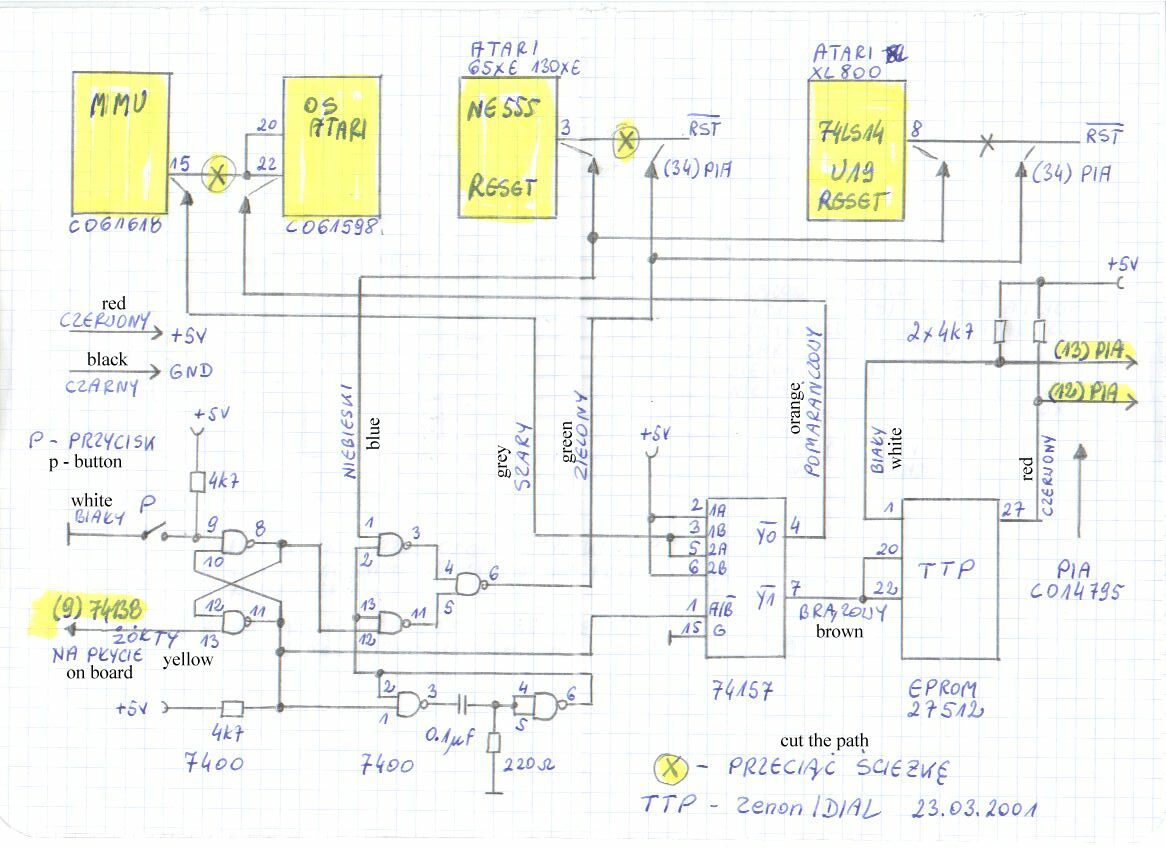 ATARI
65XE 130XE
ATARI
XL800
MMU
OS
ATARI
NE555
RESET
74LS14
U19
RESET
20
22
15
X
3
X
RST
(34) PIA
8
X
RST
(34) PIA
CO61618
CO61598
+5V
red
CZERWONY
+5V
black
CZARNY
GND
2x4k7
(13) PIA
(12) PIA
NIEBIESKI
blue
grey
SZARY
green
ZIELONY
orange
POMARAŃCZOWY
BIAŁY
white
red
CZERWONY
+5V
P - PRZYCISK
p - button
4k7
white
BIAŁY
P
9
8
10
12
11
13
(9) 74138
ŻÓŁTY
yellow
NA PŁYCIE
on board
+5V
4k7
7400
1
2
3
4
5
6
13
12
11
2
1
3
4
5
6
0.1µF
220Ω
7400
+5V
2 1A
3 1B
5 2A
6 2B
1 A/B
15 G
Y0 4
Y1 7
74157
BRĄZOWY
brown
1
20
22
27
TTP
EPROM
27512
PIA
CO14795
cut the path
X - PRZECIĄĆ ŚCIEŻKĘ
TTP - Zenon/DIAL 23.03.2001